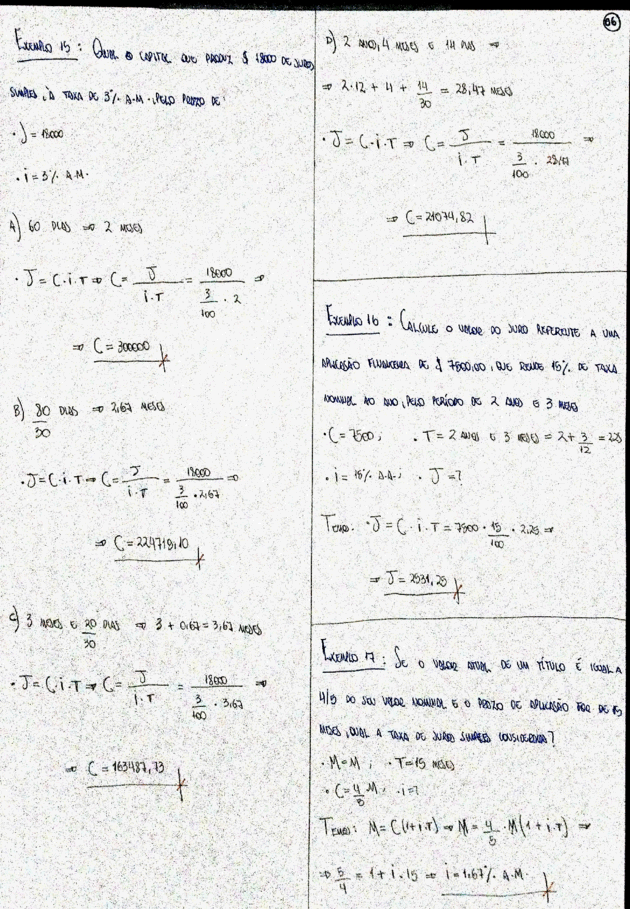 06
Exemplo 15: Qual o capital que produz $ 18000 de juros
simples, à taxa de 3% a.m., pelo prazo de:
• J = 18000
• i = 3% a.m.
A) 60 dias ⇒ 2 meses
• J = C·i·T ⇒ C = J/(i·T) = 18000/(3/100 · 2) ⇒
⇒ C = 300000
B) 80/30 dias ⇒ 2,67 meses
• J = C·i·T ⇒ C = J/(i·T) = 18000/(3/100 · 2,67) ⇒
⇒ C = 224719,10
C) 3 meses e 20/30 dias ⇒ 3 + 0,67 = 3,67 meses
• J = C·i·T ⇒ C = J/(i·T) = 18000/(3/100 · 3,67) ⇒
⇒ C = 163487,73
D) 2 anos, 4 meses e 14 dias ⇒
⇒ 2·12 + 4 + 14/30 = 28,47 meses
• J = C·i·T ⇒ C = J/(i·T) = 18000/(3/100 · 28,47) ⇒
⇒ C = 21074,82
Exemplo 16: Calcule o valor do juro referente a uma
aplicação financeira de $ 7500,00, que rende 15% de taxa
nominal ao ano, pelo período de 2 anos e 3 meses
• C = 7500; • T = 2 anos e 3 meses = 2 + 3/12 = 2,25
• i = 15% a.a.; • J = ?
Temos: • J = C·i·T = 7500 · 15/100 · 2,25 ⇒
⇒ J = 2531,25
Exemplo 17: Se o valor atual de um título é igual a
4/5 do seu valor nominal e o prazo de aplicação for de 15
meses, qual a taxa de juros simples considerada?
• M = M; • T = 15 meses
• C = 4/5 M; • i = ?
Temos: M = C(1 + i·T) ⇒ M = 4/5 · M(1 + i·T) ⇒
⇒ 5/4 = 1 + i·15 ⇒ i = 1,67% a.m.